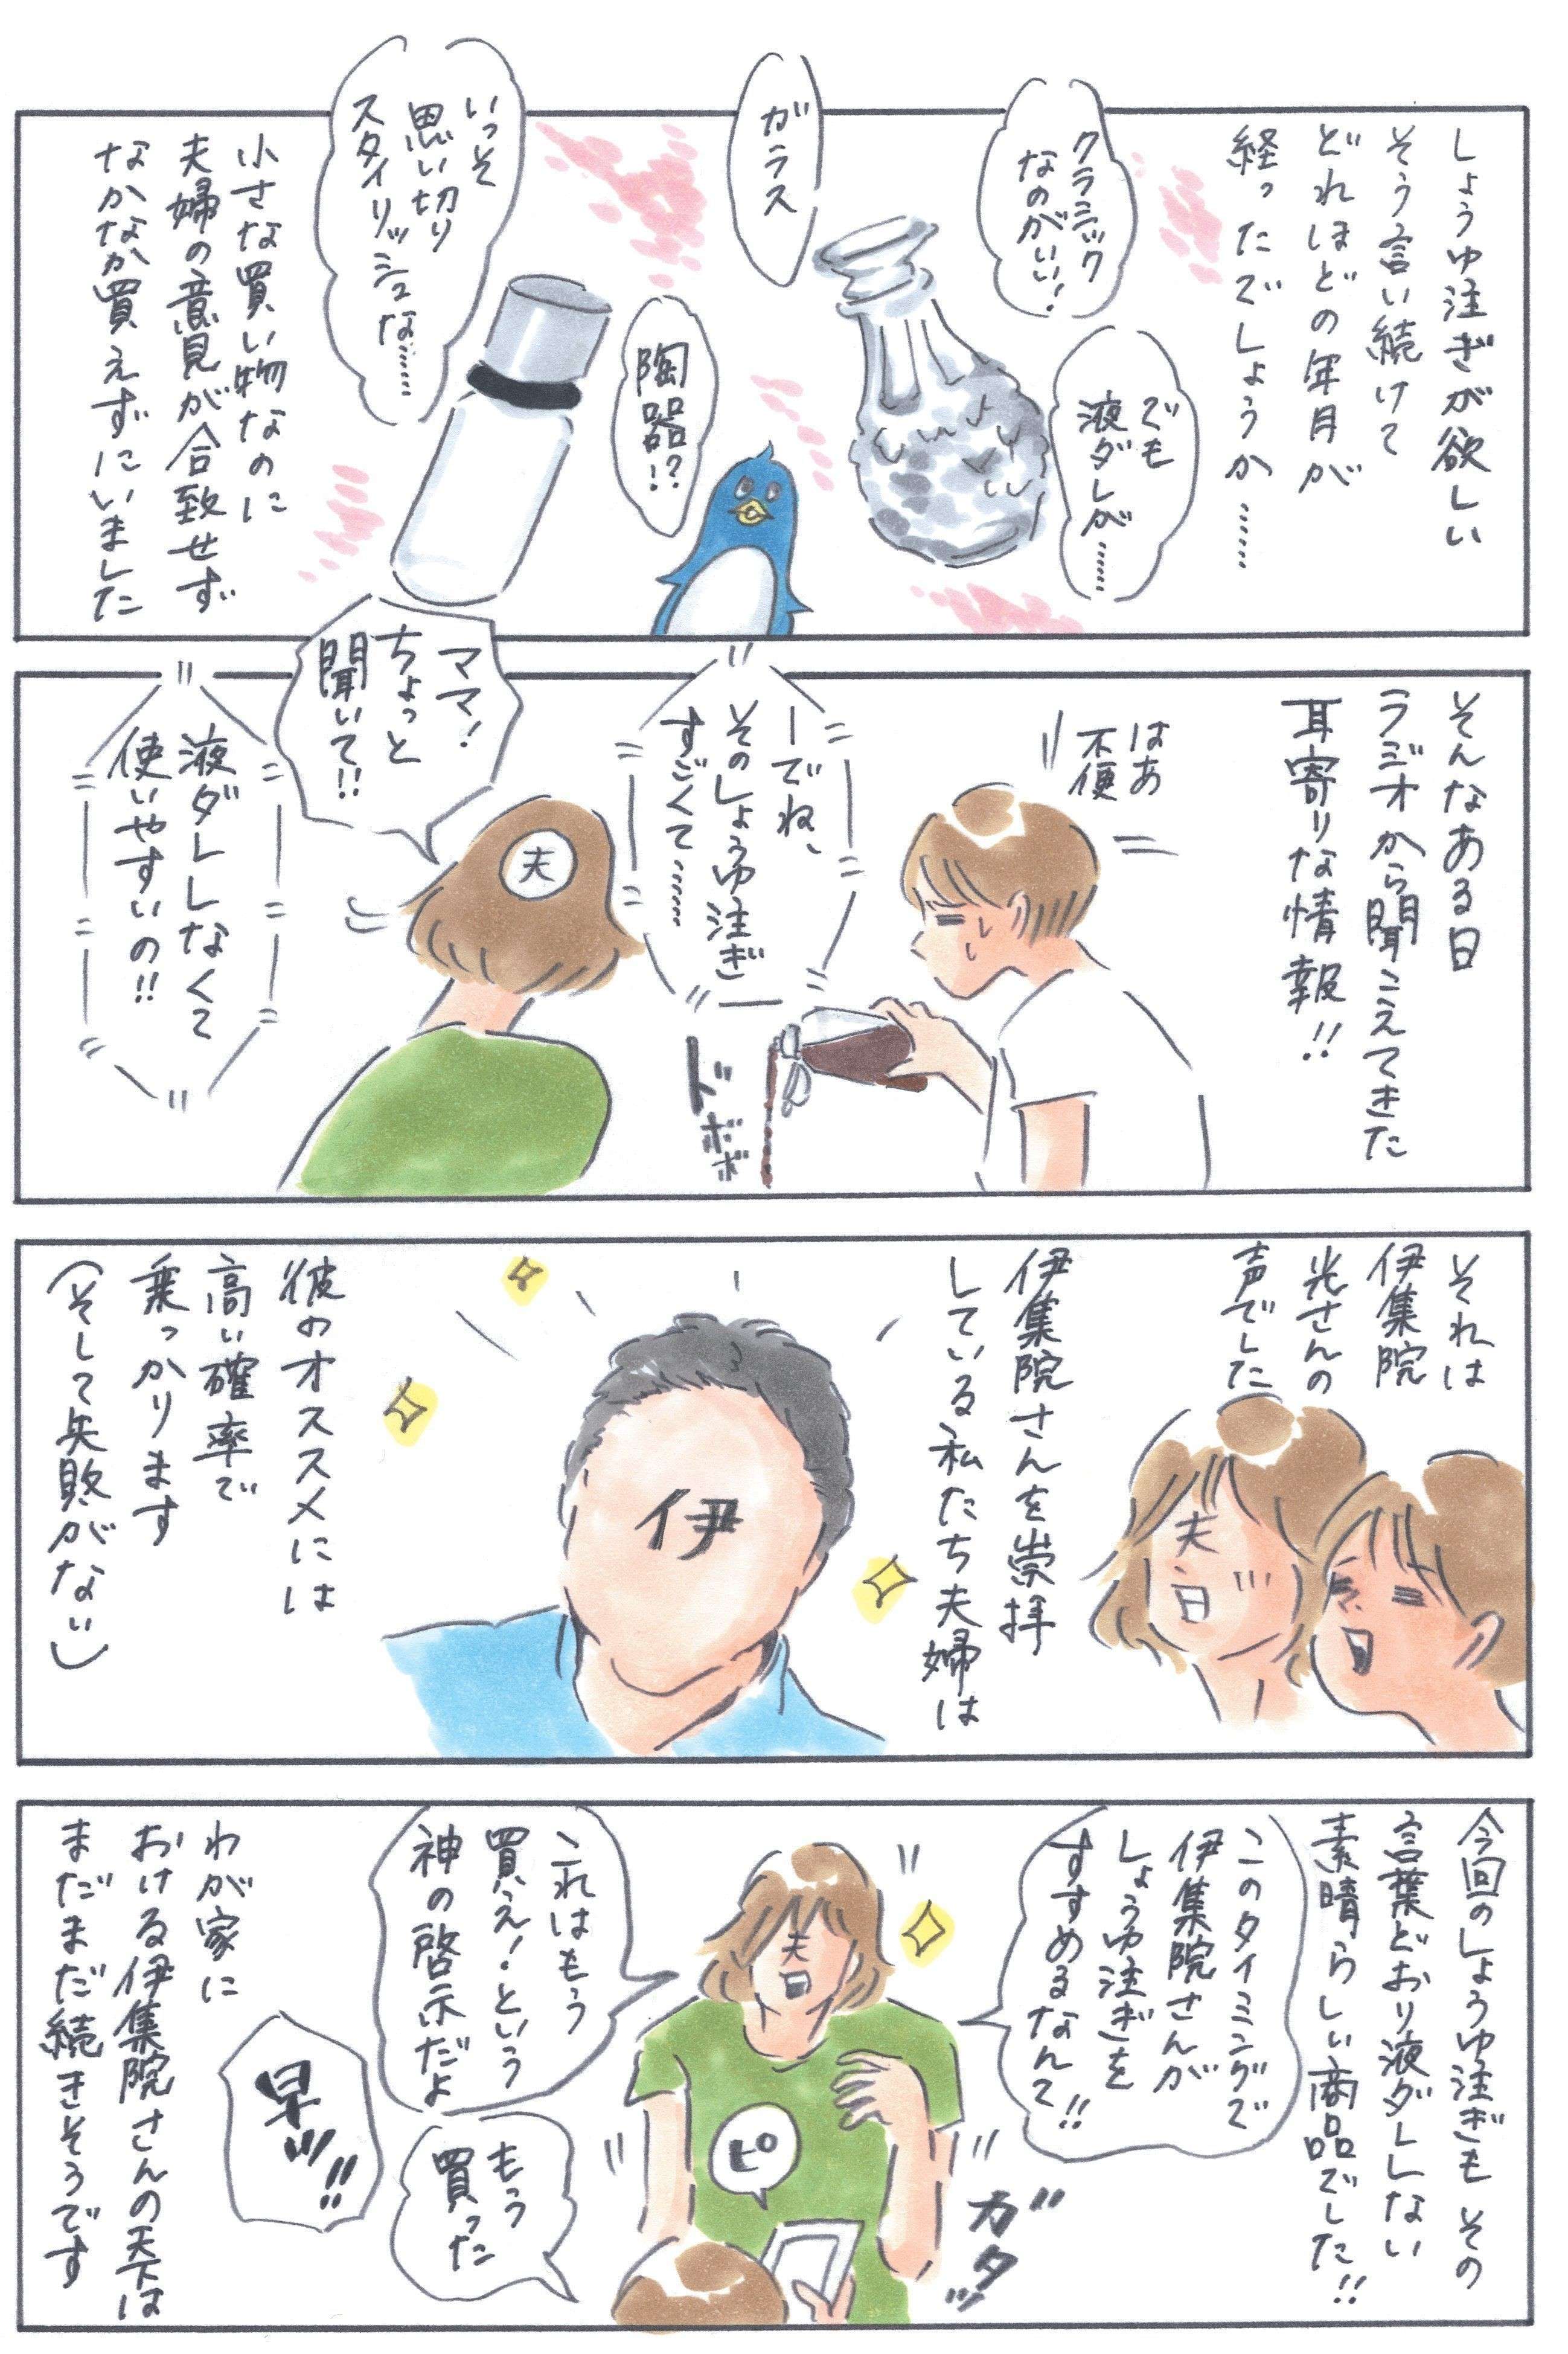 しょうゆ注ぎが欲しい
そう言い続けて
どれほどの年月が
経ったでしょうか……
クラシック
なのがいい!
でも
液ダレが……
ガラス
陶器!?
いっそ
思い切り
スタイリッシュな……
小さな買い物なのに
夫婦の意見が合致せず
なかなか買えずにいました
そんなある日
ラジオから聞こえてきた
耳寄りな情報!!
はあ
不便
ーでね、
そのしょうゆ注ぎ
すごくて……
ドボボボ
ママ!
ちょっと
聞いて!!
夫
液ダレしなくて
使いやすいの!!
それは
伊集院
光さんの
声でした
夫
伊集院さんを崇拝
している私たち夫婦は
伊
彼のオススメには
高い確率で
乗っかります
(そして失敗がない)
今回のしょうゆ注ぎも その
言葉どおり液ダレしない
素晴らしい商品でした!!
このタイミングで
伊集院さんが
しょうゆ注ぎを
すすめるなんて!!
夫
ピ
ガタッ
これはもう
買え!という
神の啓示だよ
もう
買った
早ッ!!
わが家に
おける伊集院さんの天下は
まだまだ続きそうです